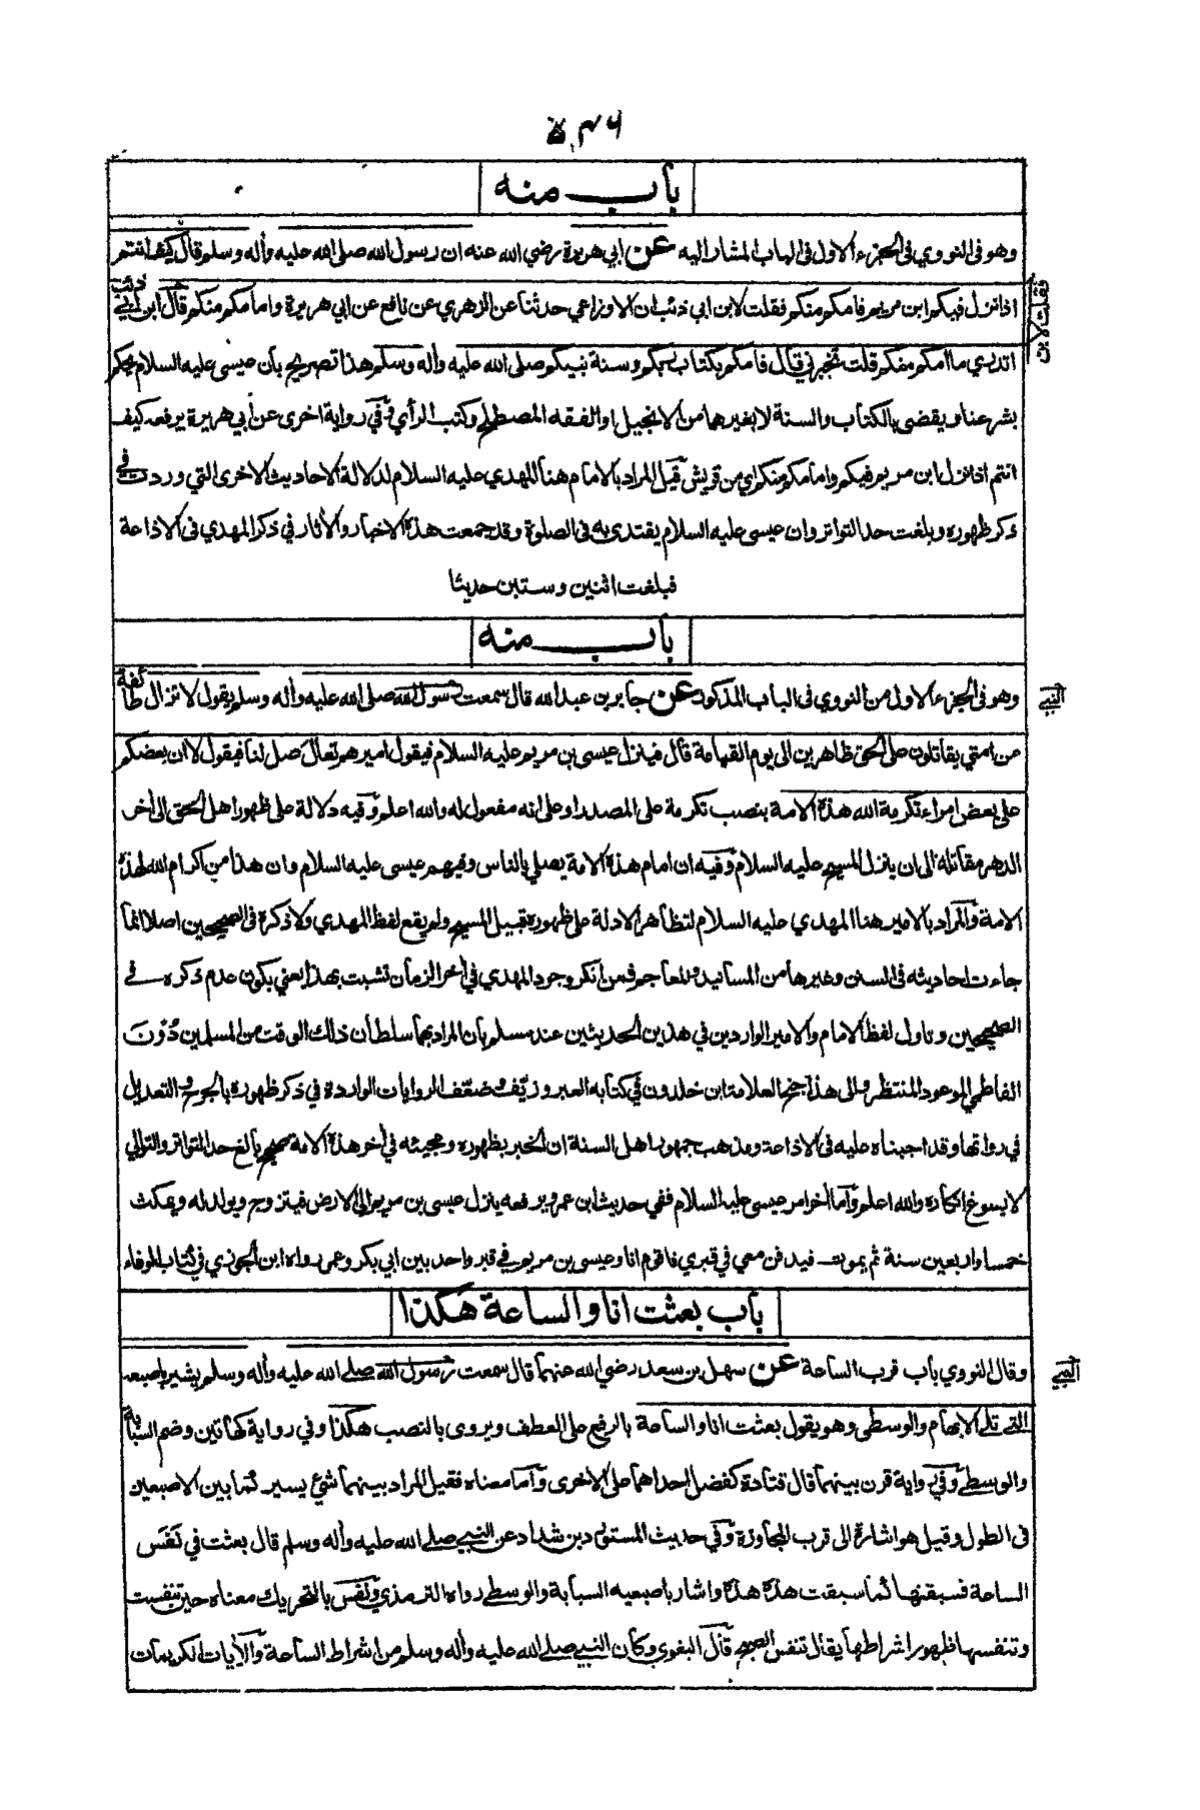 باب منه
وهو فى النووي فى الجزء الاول فى الباب المشار اليه عن ابي هريرة رضي الله عنه ان رسول الله صلى الله عليه وأله وسلم قال كيف انتم
اذا نزل فيكم ابن مريم فامكم منكم فقلت لابن ابي ذئب ان الاوزاعي حدثنا عن الزهري عن نافع عن ابي هريرة واما مكم منكم قال ابن ابي ذئب
اتدري ما امكم منكم قلت تخبرني قال فامكم بكتاب ربكم وسنة نبيكم صلى الله عليه وأله وسلم هذا تصريح بأن عيسى عليه السلام يحكم
بشرعنا ويقضى بالكتاب والسنة لا بغيرهما من الانجيل او الفقه المصطلح وكتب الرأي وفي رواية اخرى عن أبي هريرة يرفعه كيف
انتم اذا نزل ابن مريم فيكم واما مكم منكم اي من قريش قيل المراد بالامام هنا المهدي عليه السلام لدلالة الاحاديث الاخرى التي وردت في
ذكر ظهوره وبلغت حد التواتر وان عيسى عليه السلام يقتدي به فى الصلوة وقد جمعت هذه الاخبار والأثار في ذكر المهدي فى الاذاعة
فبلغت اثنين وستين حديثا
باب منه
وهو فى الجزء الاول من النووي فى الباب المذكور عن جابر بن عبد الله قال سمعت رسول الله صلى الله عليه وأله وسلم يقول لا تزال طائفة
النبي
من امتي يقاتلون على الحق ظاهرين الى يوم القيامة قال فينزل عيسى بن مريم عليه السلام فيقول اميرهم تعال صل لنا فيقول لا ان بعضكم
على بعض امراء تكرمة الله هذه الامة بنصب تكرمة على المصدر او على انه مفعول له والله اعلم وفيه دلالة على ظهور اهل الحق الى أخر
الدهر مقاتلة الى ان ينزل المسيح عليه السلام وفيه ان امام هذه الامة يصلي بالناس وفيهم عيسى عليه السلام وان هذا من اكرام الله لهذه
الامة والمراد بالامير هنا المهدي عليه السلام لتظاهر الادلة على ظهوره قبيل المسيح ولم يقع لفظ المهدي ولا ذكره فى الصحيحين اصلا انما
جاءت احاديثه فى السنن وغيرها من المسانيد والمعاجم فمن انكر وجود المهدي في أخر الزمان تشبت بهذا يعني بكون عدم ذكره في
الصحيحين وتاول لفظ الامام والامير الواردين في هذين الحديثين عند مسلم بأن المراد بهما سلطان ذلك الوقت من المسلمين دُوْنَ
الفاطمي الموعود المنتظر والى هذا جنح العلامة ابن خلدون في كتابه العبر وزيّف وضعّف الروايات الواردة في ذكر ظهوره بالجرح والتعديل
في رواتها وقد اجبناه عليه فى الاذاعة ومذهب جمهور اهل السنة ان الخبر بظهوره ومجيئه في أخر هذه الامة صحيح بالغ حد التواتر والتوالي
لا يسوغ انكاره والله اعلم وأما أخر امر عيسى عليه السلام ففي حديث ابن عمر ويرفعه ينزل عيسى بن مريم الى الارض فيتزوج ويولد له ويمكث
خمسا واربعين سنة ثم يموت فيدفن معي في قبري فاقوم انا وعيسى بن مريم في قبر واحد بين ابي بكر وعمر رواه ابن الجوزي في كتاب الوفاء
باب بعثت انا والساعة هكذا
وقال النووي بأب قرب الساعة عن سهل بن سعد رضي الله عنهما قال سمعت رسول الله صلى الله عليه وأله وسلم يشير باصبعه
النبي
التي تلي الابهام والوسطى وهو يقول بعثت انا والساعة بالرفع على العطف ويروى بالنصب هكذا وفي رواية كهاتين وضم السبابة
والوسطى وفي رواية قرن بينهما قال قتادة كفضل احداهما على الاخرى وأما معناه فقيل المراد بينهما شيء يسير كما بين الاصبعين
فى الطول وقيل هو اشارة الى قرب المجاوزة وفي حديث المستورد بن شداد عن النبي صلى الله عليه وأله وسلم قال بعثت في نَفَس
الساعة فسبقتها كما سبقت هذه هذه واشار بأصبعيه السبابة والوسطى رواه الترمذي ونفس بالتحريك معناه حين تنفست
وتنفسها ظهور اشراطها يقال تنفس الصبح قال البغوي وكان النبي صلى الله عليه وأله وسلم من اشراط الساعة والأيات الكريمات